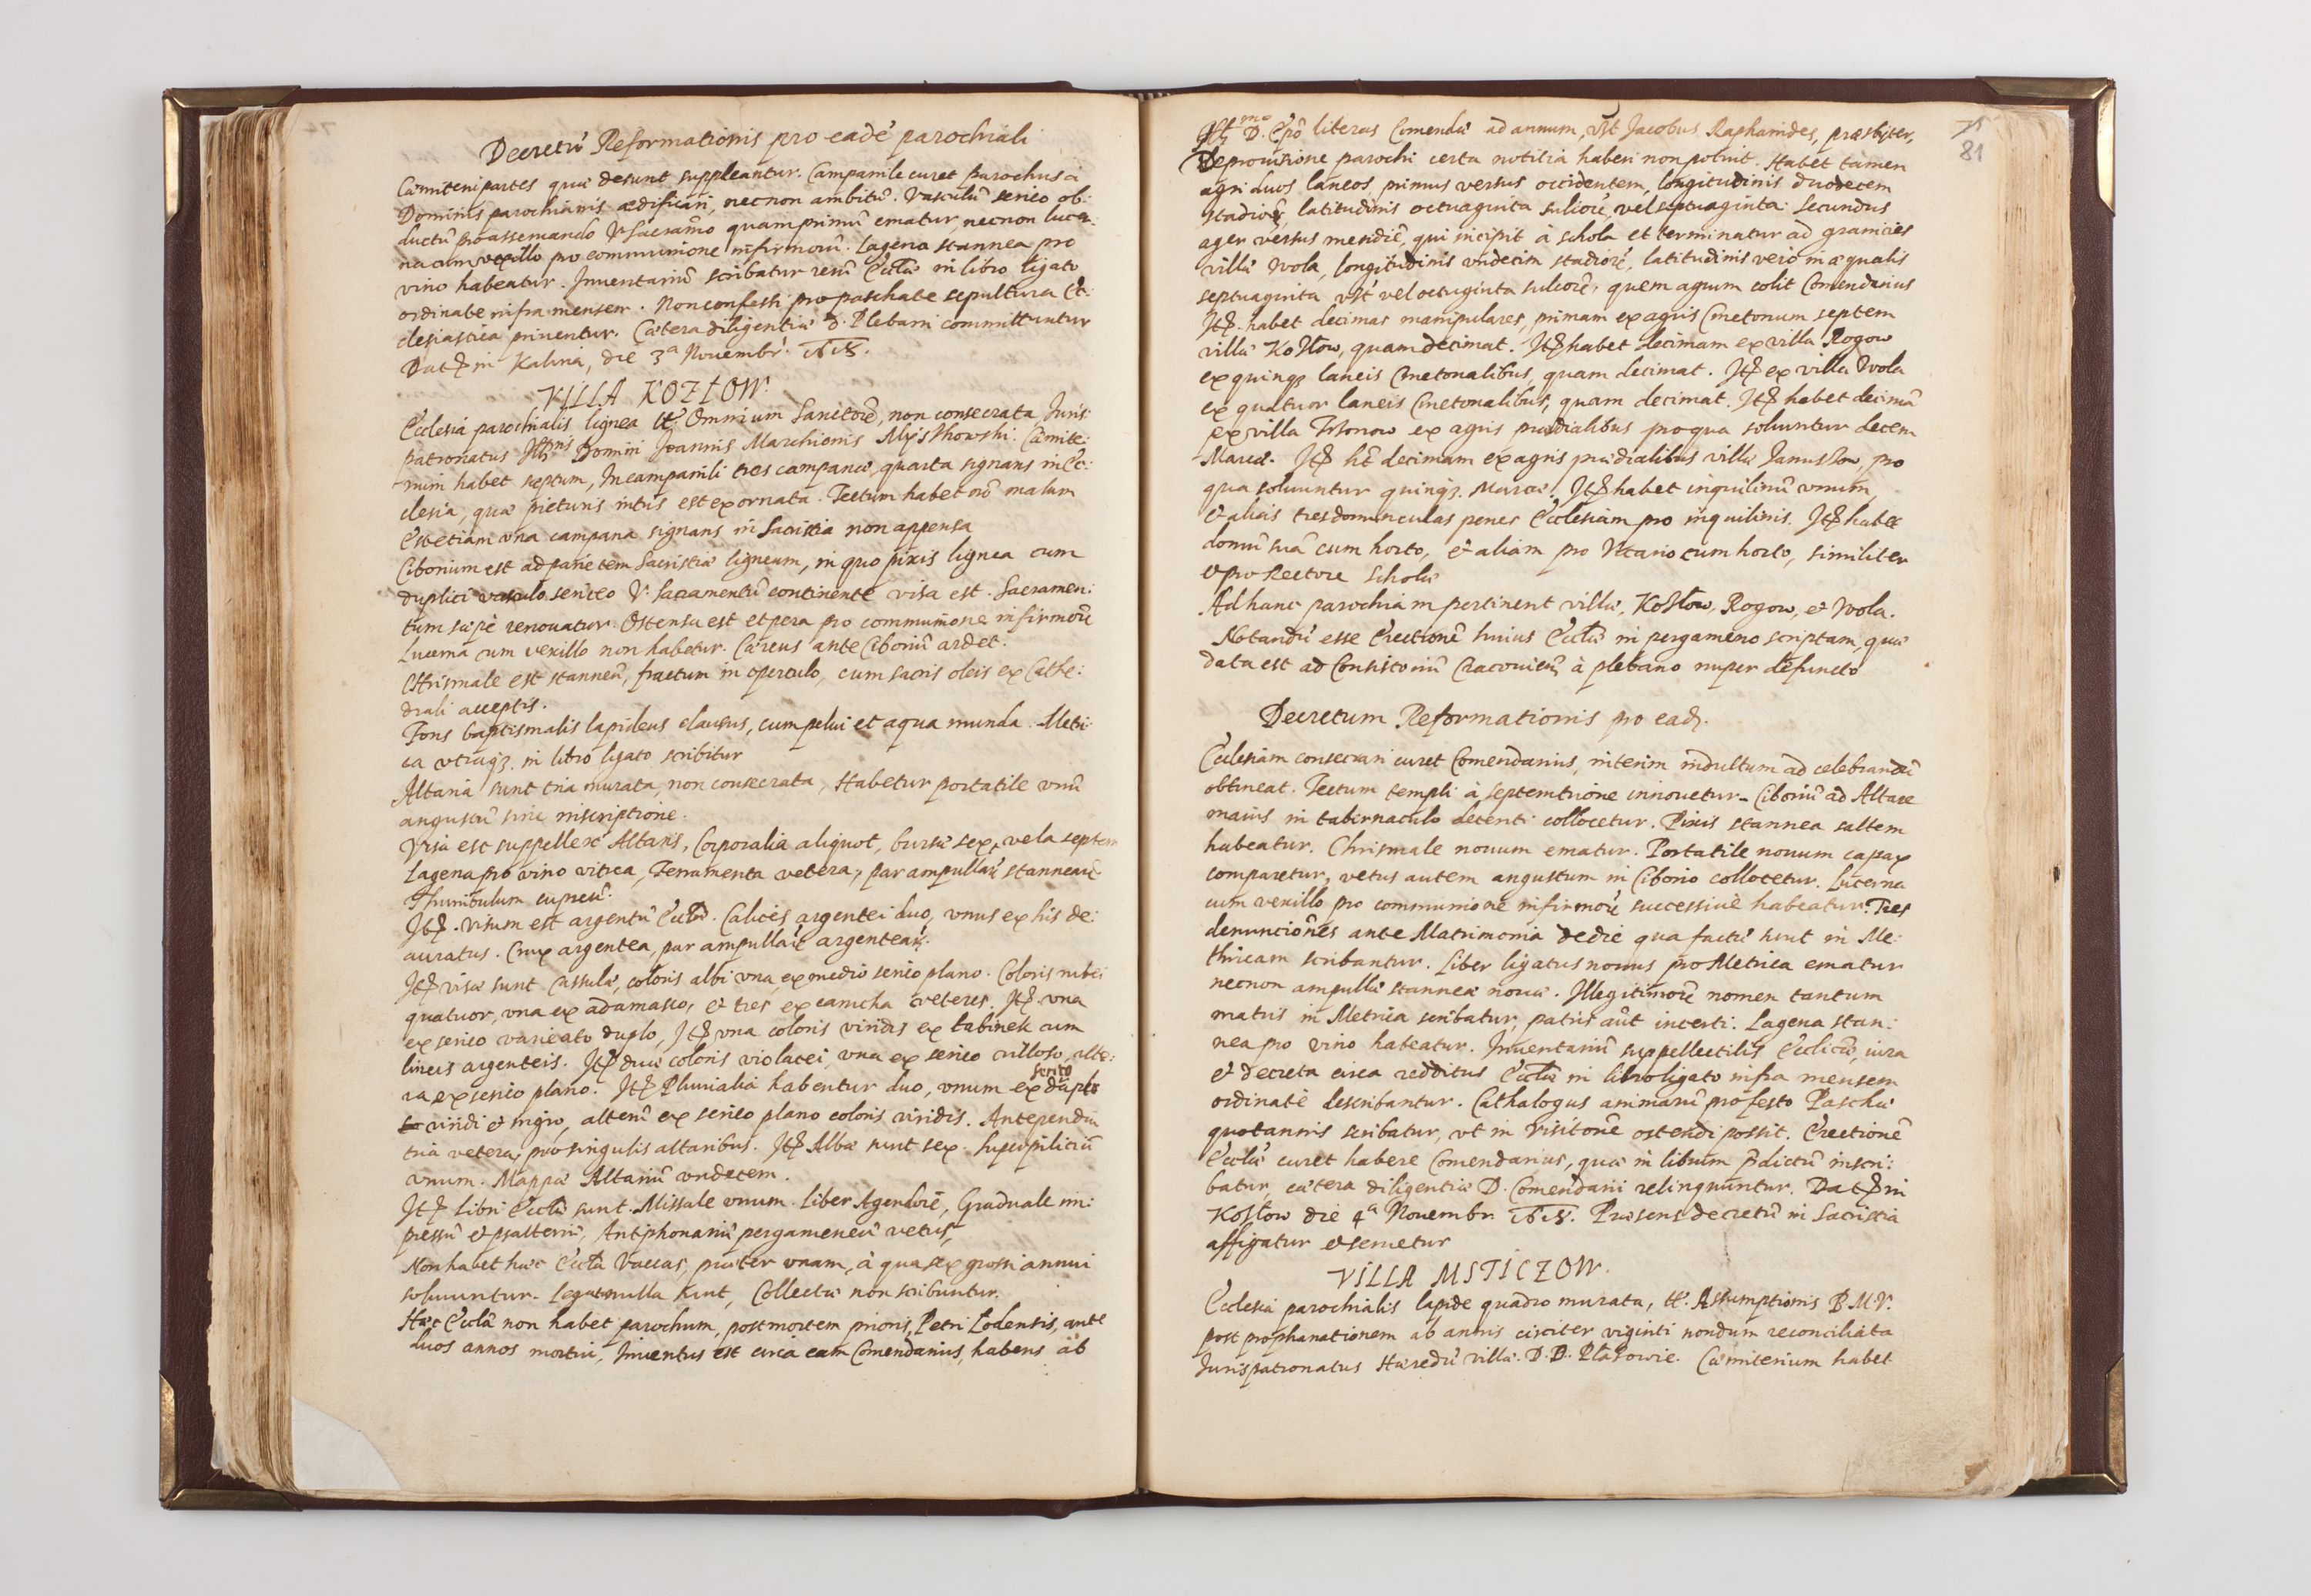 Decretū Reformationis pro eadē parochiali
Cæmiterij partes quæ desunt suppleantur. Campanile curet Parochus à
Dominis parochianis ædificari, necnon ambitū. Vasculū serico ob:
ductū pro asseruando V. Sacramēto quamprimū ematur, necnon lucer:
na cum vexillo pro communione infirmorū. Lagena stannea pro
vino habeatur. Inuentariū scribatur rerū Eccłæ in libro ligato
ordinate infra mensem. Non confessi pro paschate sepultura Ec:
clesiastica priuentur. Cætera diligentiæ D. Plebani committuntur
Dat in Kalina, die 3ª Nouembr.
VILLA KOZŁOW.
Ecclesia parochialis lignea tt. Omnium Sanctorū, non consecrata Juris
patronatus Domini Joannis Marchionis Myszkowski. Cæmite:
rium habet septum, In campanili tres campanæ, quarta signans in Ec:
clesia, quæ picturis intus est exornata. Tectum habet nō malum
Est etiam vna campana signans in Sacristia non appensa
Ciborium est ad parietem Sacristiæ ligneum, in quo pixis lignea cum
duplici vasculo sericeo V. Sacramentū continente visa est. Sacramen:
tum sæpè renouatur. Ostensa est et pera pro communione infirmorū
Lucerna cum vexillo non habetur. Cæreus ante Ciboriū ardet.
Chrismale est stanneū, fractum in operculo, cum sacris oleis ex Cathe:
drali acceptis.
Fons baptismalis lapideus clausus, cum pelui et aqua munda. Metri:
ca vtraqȝ in libro ligato scribitur
Altaria sunt tria murata, non consecrata, Habetur portatile vnū
angustū sine inscriptione.
Visa est suppellex Altaris, Corporalia aliquot, bursæ sex, vela septem
Lagena pro vino vitrea, Ferramenta vetera, par ampullarū stannearū
Thuribulum cupreū.
Itē. visum est argentū Eccłæ. Calices argentei duo, vnus ex his de:
auratus. Crux argentea, par ampullarū argentearū.
Itē visæ sunt Cassulæ, coloris albi vna ex medio serico plano. Coloris rubei
quatuor, vna ex adamasco, et tres ex camcha veteres. Itē vna
ex serico varieato duplo, Itē vna coloris viridis ex tabinek cum
lineis argenteis. Itē duæ coloris violacei, vna ex serico villoso, alte:
ra ex serico plano. Itē Pluuialia habentur duo, vnum ex serico duplo
viridi et nigro, alterū ex serico plano coloris viridis. Antependia
tria vetera, pro singulis altaribus. Itē Albæ sunt sex. Superpiliciū
vnum. Mappæ Altariū vndecem.
Itē Libri Eccłæ sunt. Missale vnum. Liber Agendorū, Graduale im:
pressū et psalteriū, Antiphonariū pergameneū vetus,
Non habet hæc Eccła Vaccas, præter vnam, à qua sex grossi annui
soluuntur. Legata nulla sunt, Collectæ non scribuntur.
Hæc Eccła non habet parochum, post mortem prioris, Petri Lodensis, ante
duos annos mortui, Inuentus est circa eam Comendarius, habens ab
D. Epō literas Comendæ ad annum, vt Jacobus Raphanides, præsbyter,
De prouisione parochi certa notitia haberi non potuit. Habet tamen
agri duos laneos, primus versus occidentem, longitudinis duodecem
stadiorū, latitudinis octuaginta sulcorū, vel septuaginta: Secundus
ager versus meridiē, qui incipit à schola et terminatur ad granicies
villæ Wola, longitudinis vndecim stadiorū, latitudinis verò inæqualis
septuaginta vt vel octuginta sulcorū, quem agrum colit Comendarius
Itē. habet decimas manipulares, primam ex agris Cmetonum septem
villæ Kozłow, quam decimat. Itē habet decimam ex villa Rogow
ex quinqȝ laneis Cmetonalibus, quam decimat. Itē ex villa Wola
ex quatuor laneis Cmetonalibus, quam decimat. Itē habet decimā
ex villa ex agris prædialibus pro qua soluuntur decem
Marcæ. Itē hēt decimam ex agris prædialibus villæ Januszow, pro
qua soluuntur quinqȝ. Marcæ. Itē habet inquilinū vnum,
et alias tres domunculas penes Ecclesiam pro inquilinis. Itē habet
domū suā cum horto, et aliam pro Vicario cum horto, similiter
et pro Rectore Scholæ
Ad hanc parochiam pertinent villæ, Kozłow, Rogow, et Wola.
Notandū esse Erectionē huius Eccłæ in pergameno scriptam, quæ
data est ad Consistoriū Cracouien̄ à plebano nuper defuncto
Decretum Reformationis pro eadȝ.
Ecclesiam consecrari curet Comendarius, interim indultum ad celebrandū
obtineat. Tectum templi à septemtrione innouetur. Ciboriū ad Altare
maius in tabernaculo decenti collocetur. Pixis stannea saltem
habeatur. Chrismale nouum ematur. Portatile nouum capax
comparetur, vetus autem angustum in Ciborio collocetur. Lucerna
cum vexillo pro communione infirmorū successiuè habeatur. Tres
denunciōnes ante Matrimonia de die qua factæ sunt in Me:
thricam scribantur. Liber ligatus nouus pro Metrica ematur
necnon ampullæ stanneæ nouæ. Illegitimorū nomen tantum
matris in Metrica scribatur, patris aūt incerti. Lagena stan:
nea pro vino habeatur. Inuentariū suppellectilis Ecclicæ, iura
et decreta circa redditus Eccłæ in libro ligato infra mensem
ordinatè describantur. Cathalogus animarū pro festo Paschæ
quotannis scribatur, vt in visitōne ostendi possit. Erectionē
Eccłæ curet habere Comendarius, quæ in librum p̄dictū inscri:
batur, cætera diligentiæ D. Comendarij relinquuntur. Dat in
Kozłow die 4ª Nouembr. Præsens decretū in Sacristia
affigatur et seruetur
VILLA MSTICZOW.
Ecclesia parochialis lapide quadro murata, tt. Assumptionis B.M.V.
post prophanationem ab annis circiter viginti nondum reconciliata
Jurispatronatus Hæredū villæ. D.D. Cæmiterium habet
75
81